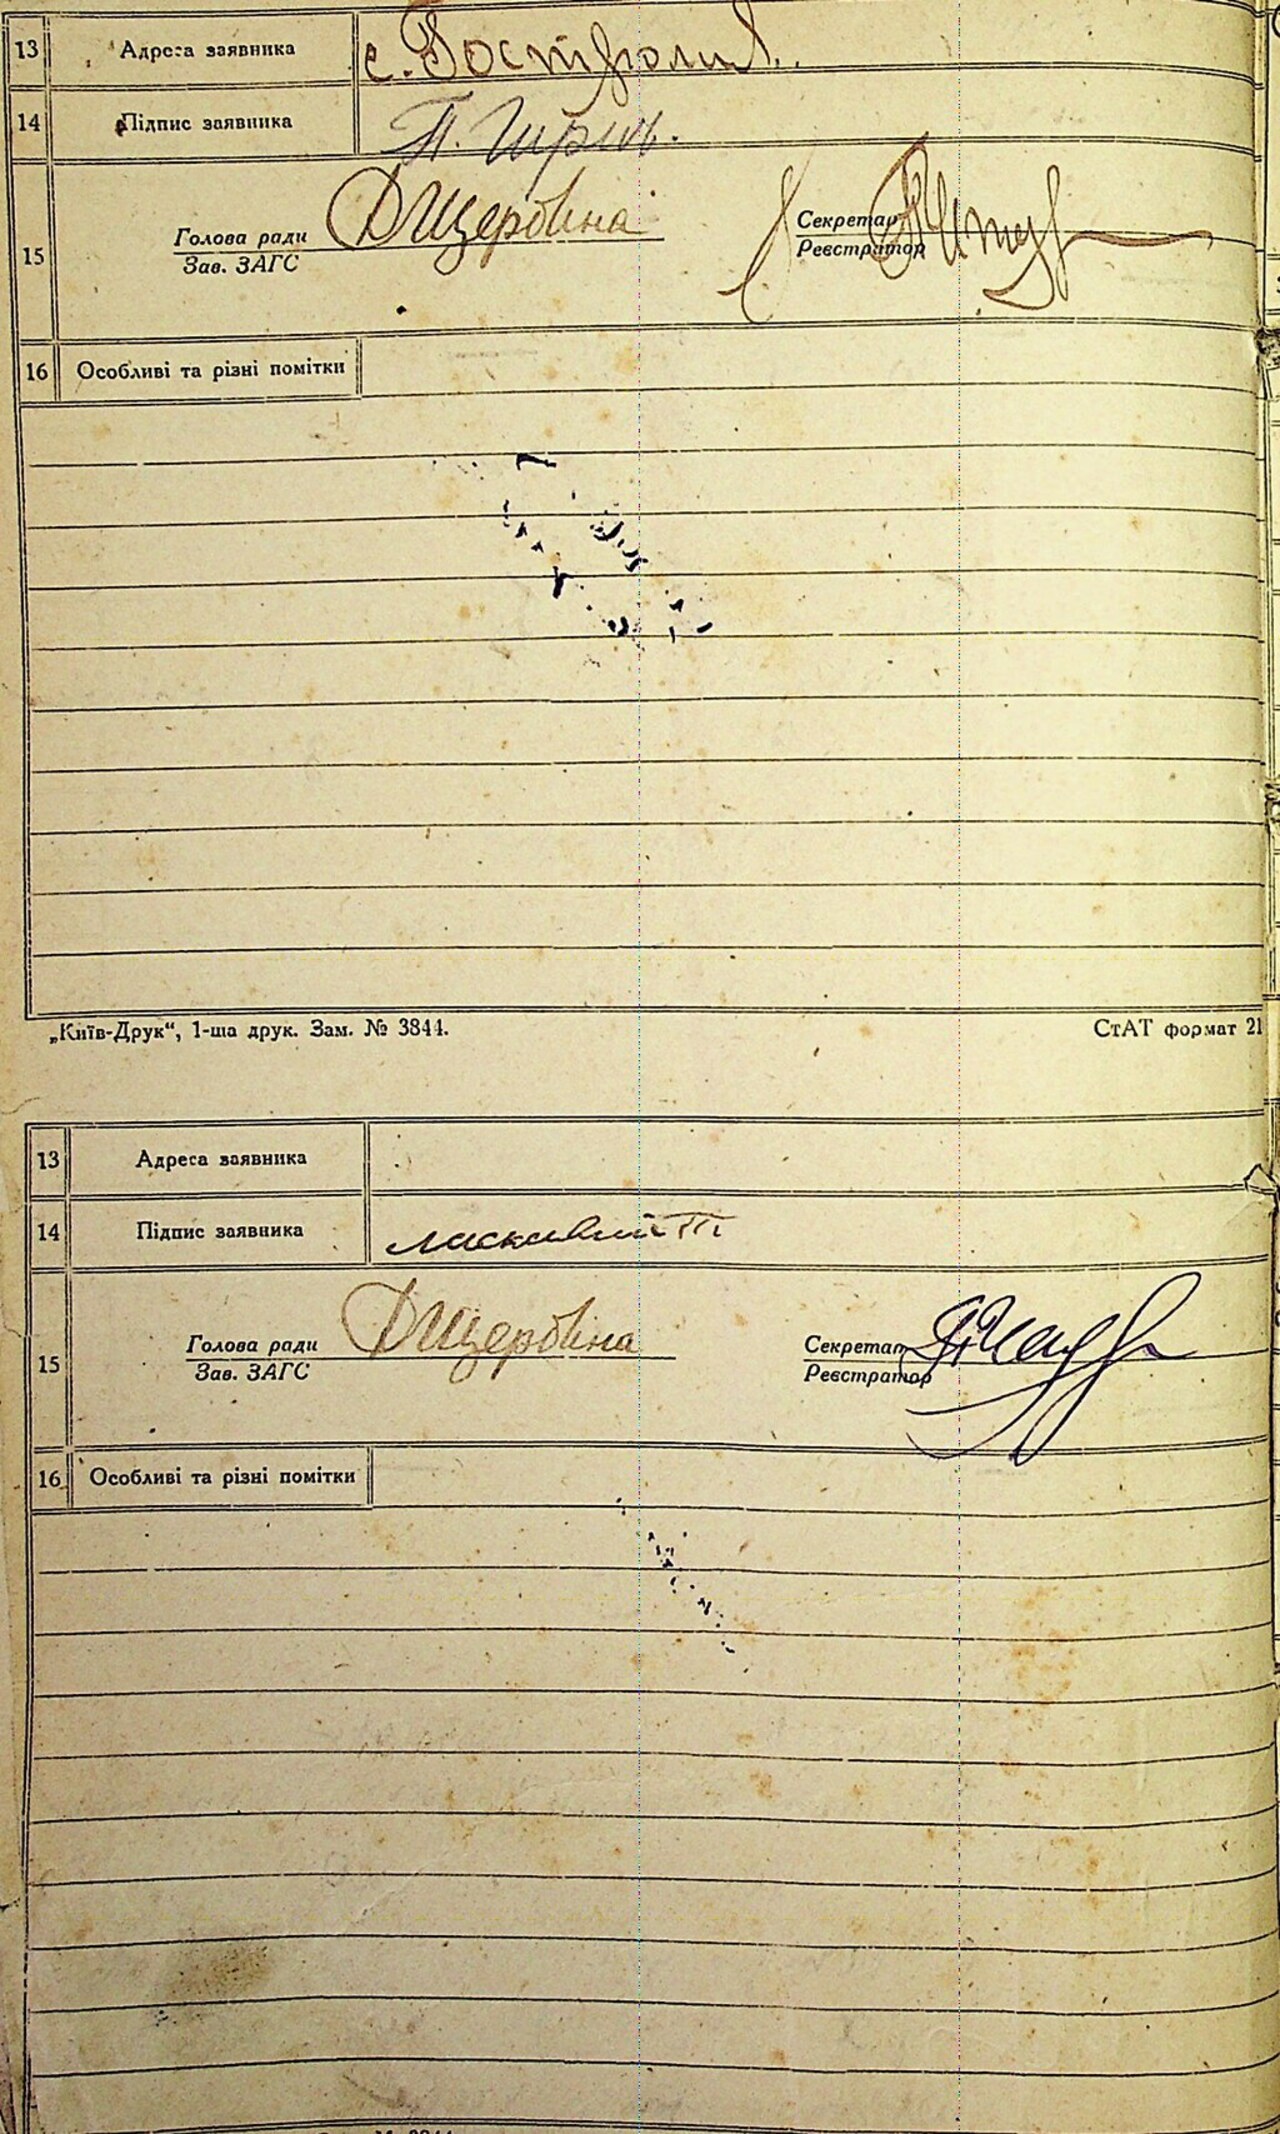 13 Адреса заявника с. Гостролись.
14 Підпис заявника
15 Голова ради Зав. ЗАГС ДЩербина Секретар Реєстратор
16 Особливі та різні помітки
„Київ-Друк“, 1-ша друк. Зам. № 3844. СтАТ формат 21
13 Адреса заявника
14 Підпис заявника Ласкавий П
15 Голова ради Зав. ЗАГС ДЩербина Секретар Реєстратор
16 Особливі та різні помітки